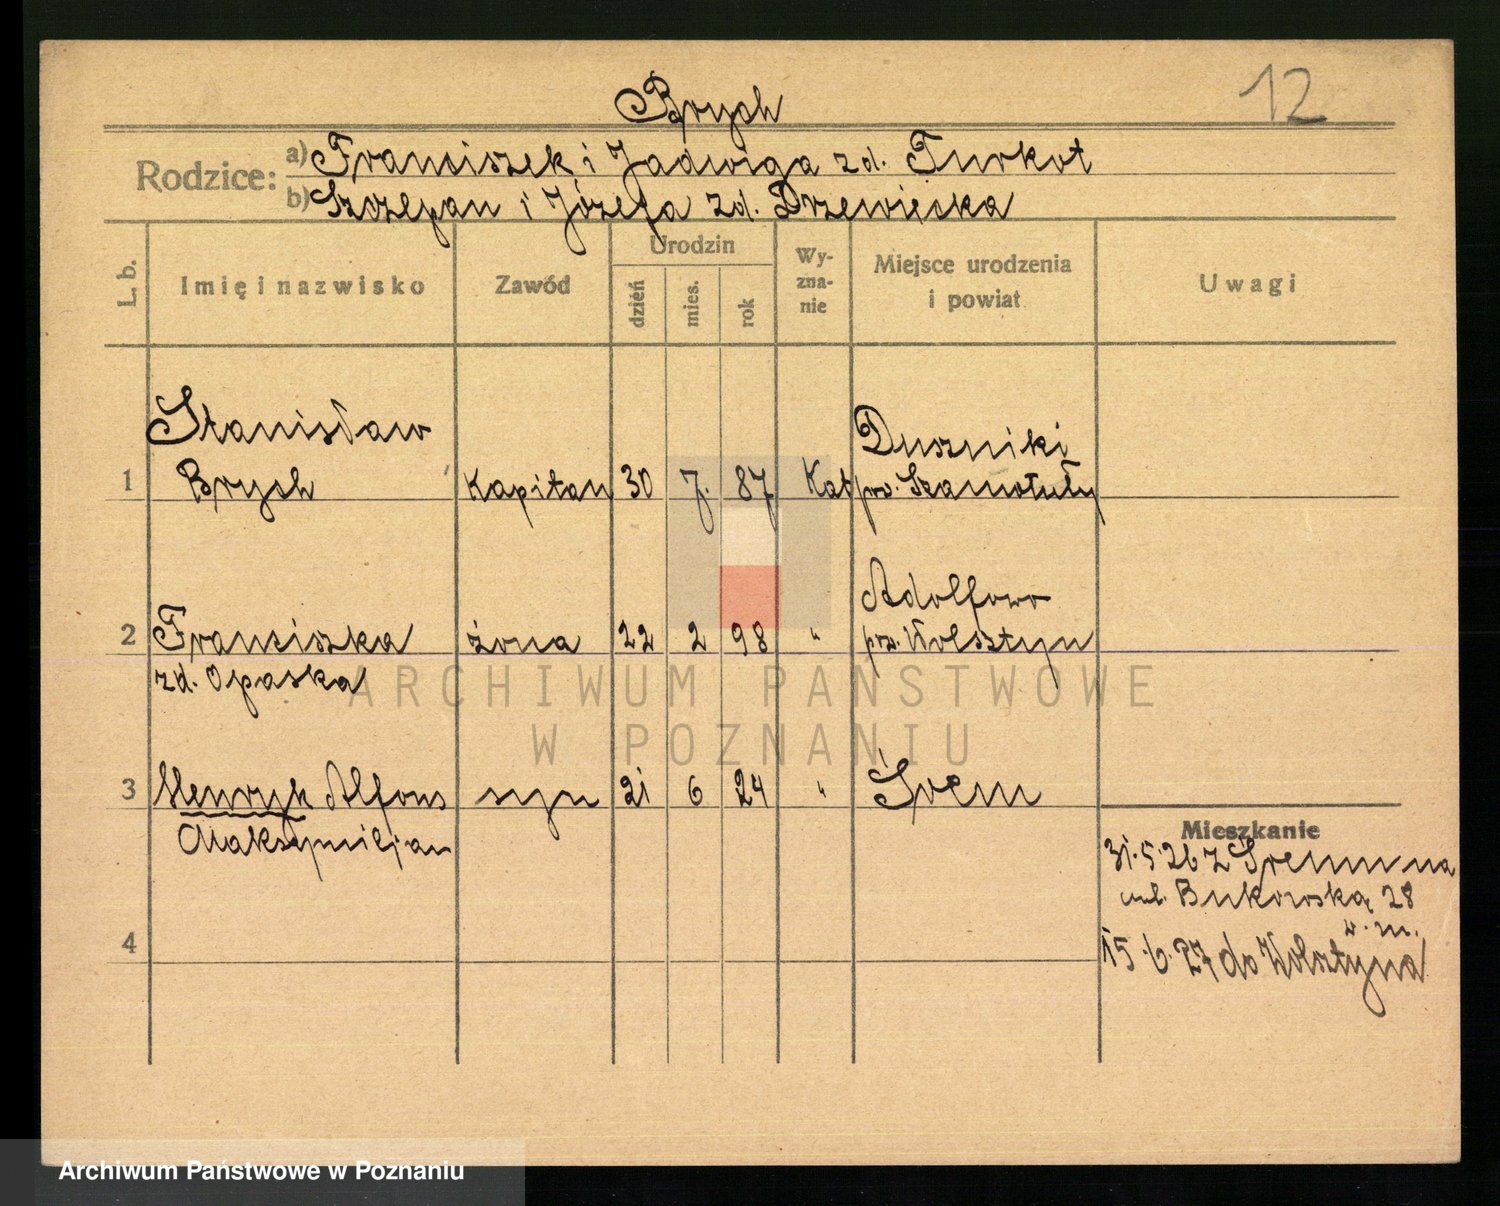 12
Brych
Rodzice: a) Franciszek i Jadwiga zd. Turkot
b) Szczepan i Józefa zd. Drzewięcka
L. b. Imię i nazwisko Zawód Urodzin dzień mies. rok Wy-zna-nie Miejsce urodzenia i powiat Uwagi
Stanisław Duszniki
1 Brych Kapitan 30 7. 87 Kat pow. Szamotuły
Adolfowo
2 Franciszka żona 22 2 98 " pow. Wolsztyn
zd. Opaska
3 Henryk Alfons syn 21 6 24 " Śrem
Maksymiljan
Mieszkanie
31.5.26 z Śremu na
ul. Bukowską 28
w. m.
4
15.6.27 do Wolsztyna
ARCHIWUM PAŃSTWOWE
W POZNANIU
Archiwum Państwowe w Poznaniu